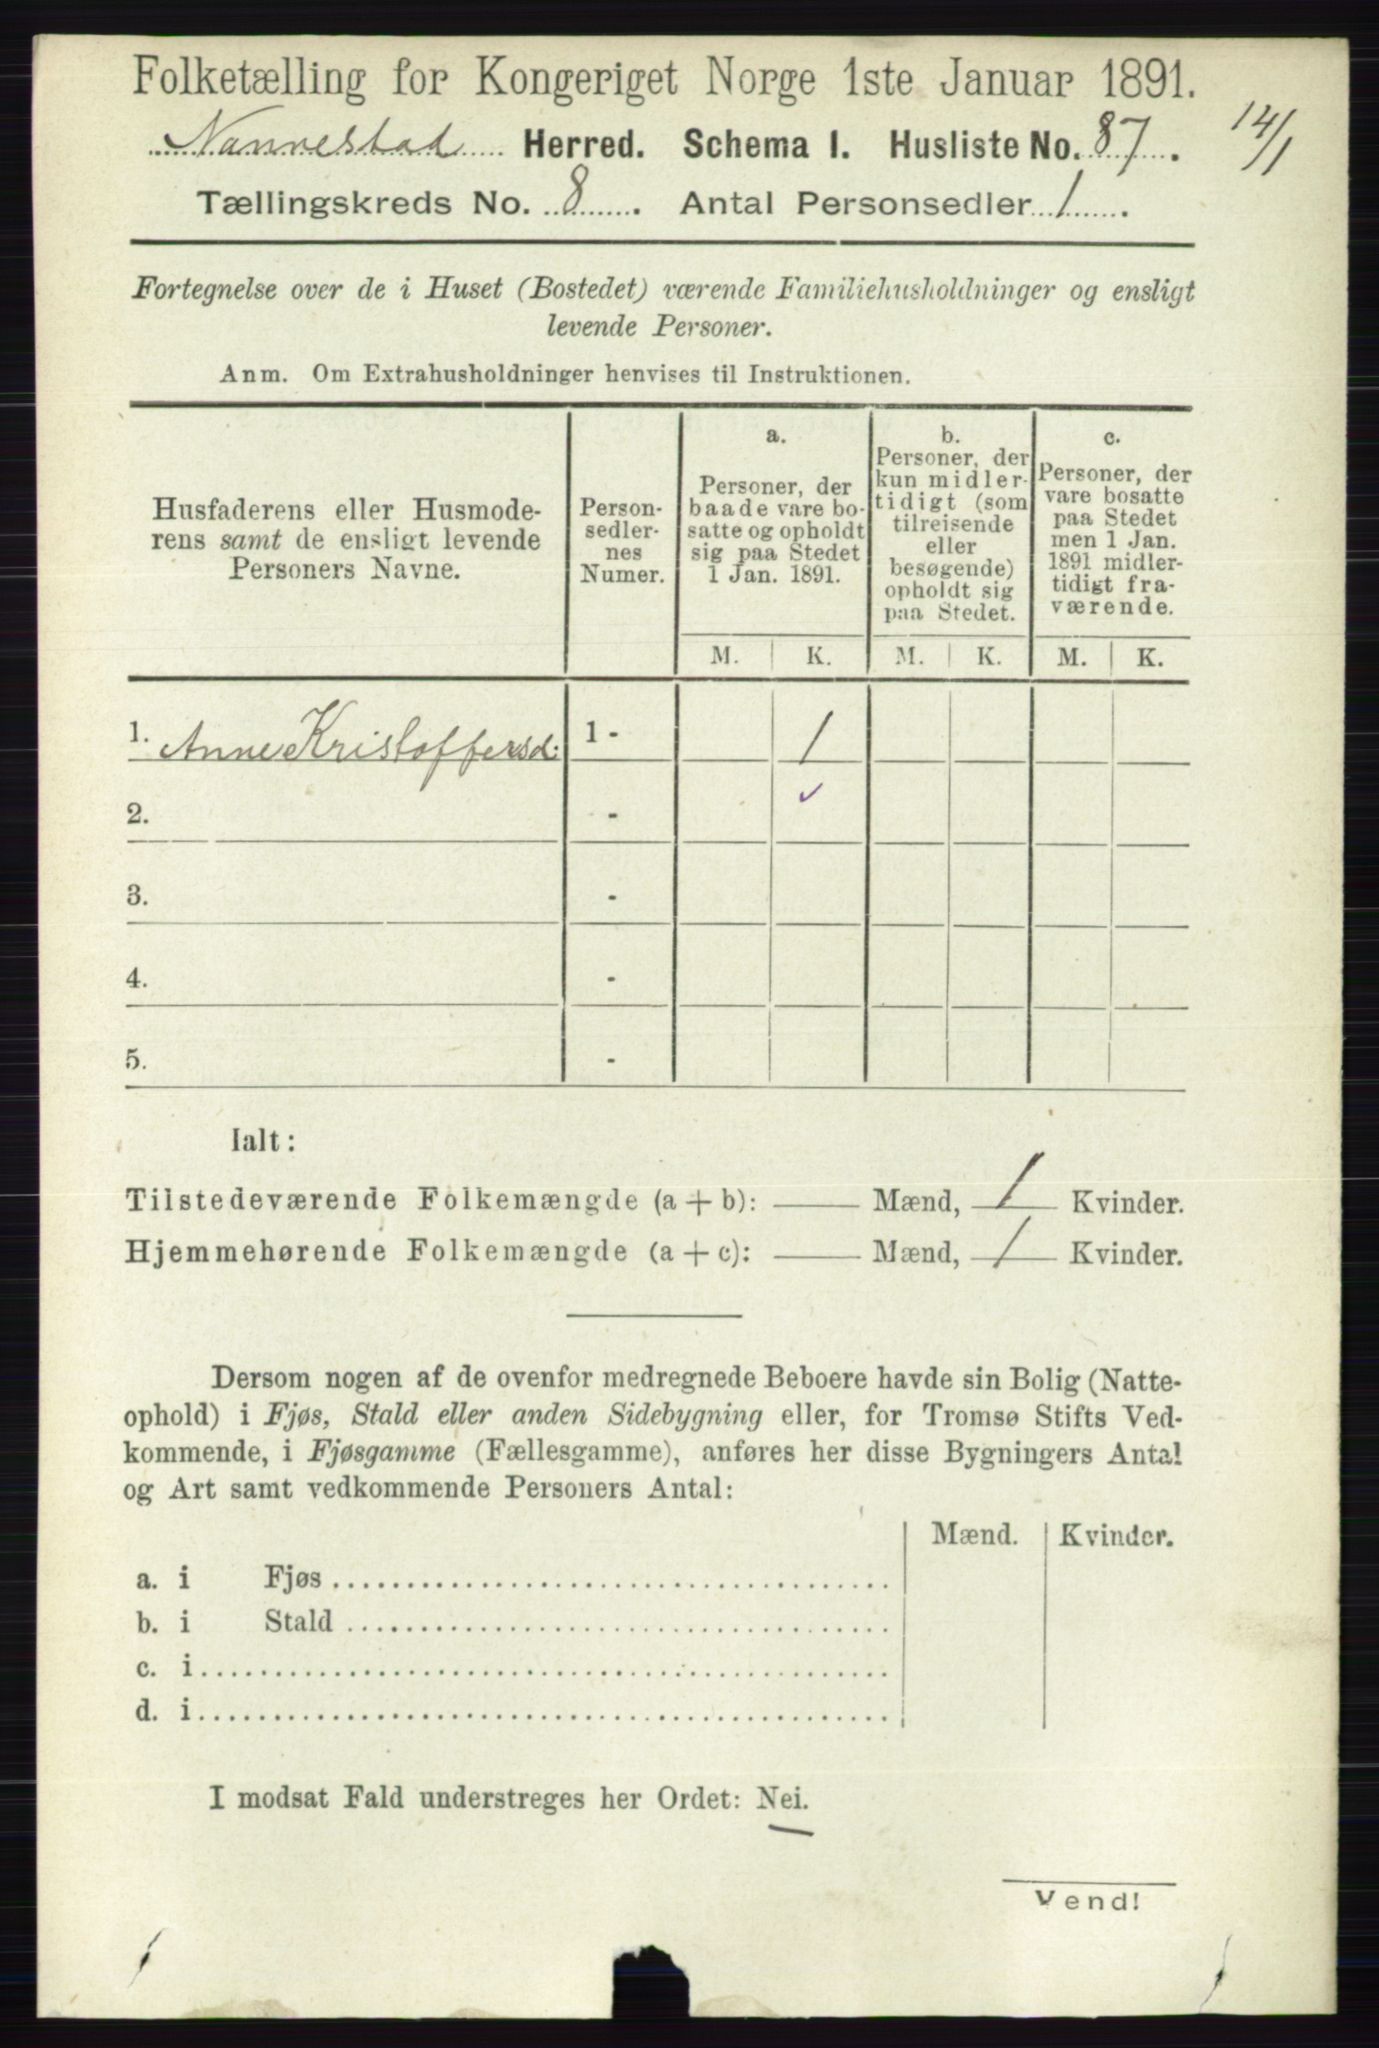 Folketælling for Kongeriget Norge 1ste Januar 1891.
Nannestad Herred. Schema I. Husliste No. 87. 14/1
Tællingskreds No. 8. Antal Personsedler 1.
Fortegnelse over de i Huset (Bostedet) værende Familiehusholdninger og ensligt
levende Personer.
Anm. Om Extrahusholdninger henvises til Instruktionen.
Husfaderens eller Husmode-
rens samt de ensligt levende
Personers Navne.
Person-
sedler-
nes
Numer.
a.
Personer, der
baade vare bo-
satte og opholdt
sig paa Stedet
1 Jan. 1891.
b.
Personer, der
kun midler-
tidigt (som
tilreisende
eller
besøgende)
opholdt sig
paa Stedet.
c.
Personer, der
vare bosatte
paa Stedet
men 1 Jan.
1891 midler-
tidigt fra-
værende.
M. K. M. K. M. K.
1. Anne Kristoffersd: 1 - 1
2. - ✓
3. -
4. -
5. -
Ialt:
Tilstedeværende Folkemængde (a + b): — Mænd, 1 Kvinder.
Hjemmehørende Folkemængde (a + c): — Mænd, 1 Kvinder.
Dersom nogen af de ovenfor medregnede Beboere havde sin Bolig (Natte-
ophold) i Fjøs, Stald eller anden Sidebygning eller, for Tromsø Stifts Ved-
kommende, i Fjøsgamme (Fællesgamme), anføres her disse Bygningers Antal
og Art samt vedkommende Personers Antal:
Mænd. Kvinder.
a. i Fjøs
b. i Stald
c. i
d. i
I modsat Fald understreges her Ordet: Nei.
Vend!